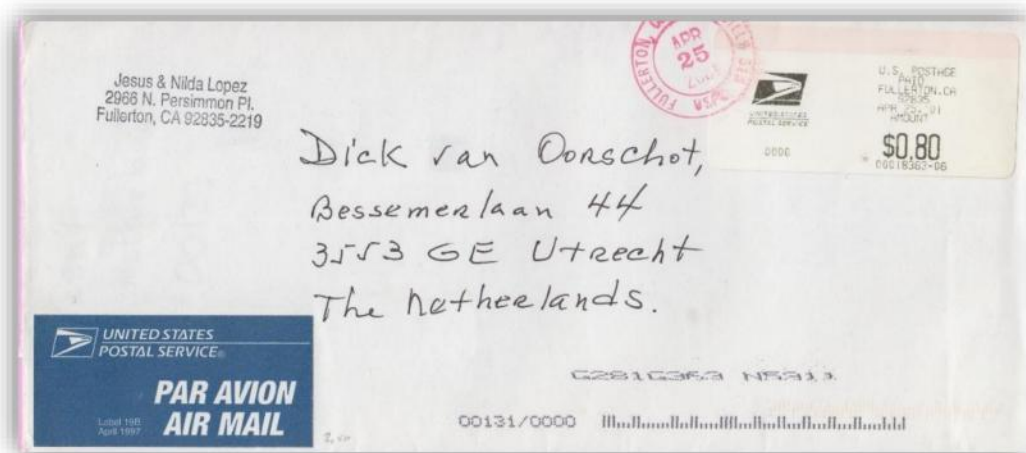 Jesus & Nilda Lopez
2966 N. Persimmon Pl.
Fullerton, CA 92835-2219
FULLERTON,
APR
25
USPS
UNITED STATES
POSTAL SERVICE
0000
U.S. POSTAGE
PAID
FULLERTON.CA
92835
APR 25, 01
AMOUNT
$0.80
00018363-06
Dick van Oorschot,
Bessemerlaan 44
3553 GE Utrecht
The Netherlands.
UNITED STATES
POSTAL SERVICE®
PAR AVION
AIR MAIL
Label 19B
April 1997
00131/0000